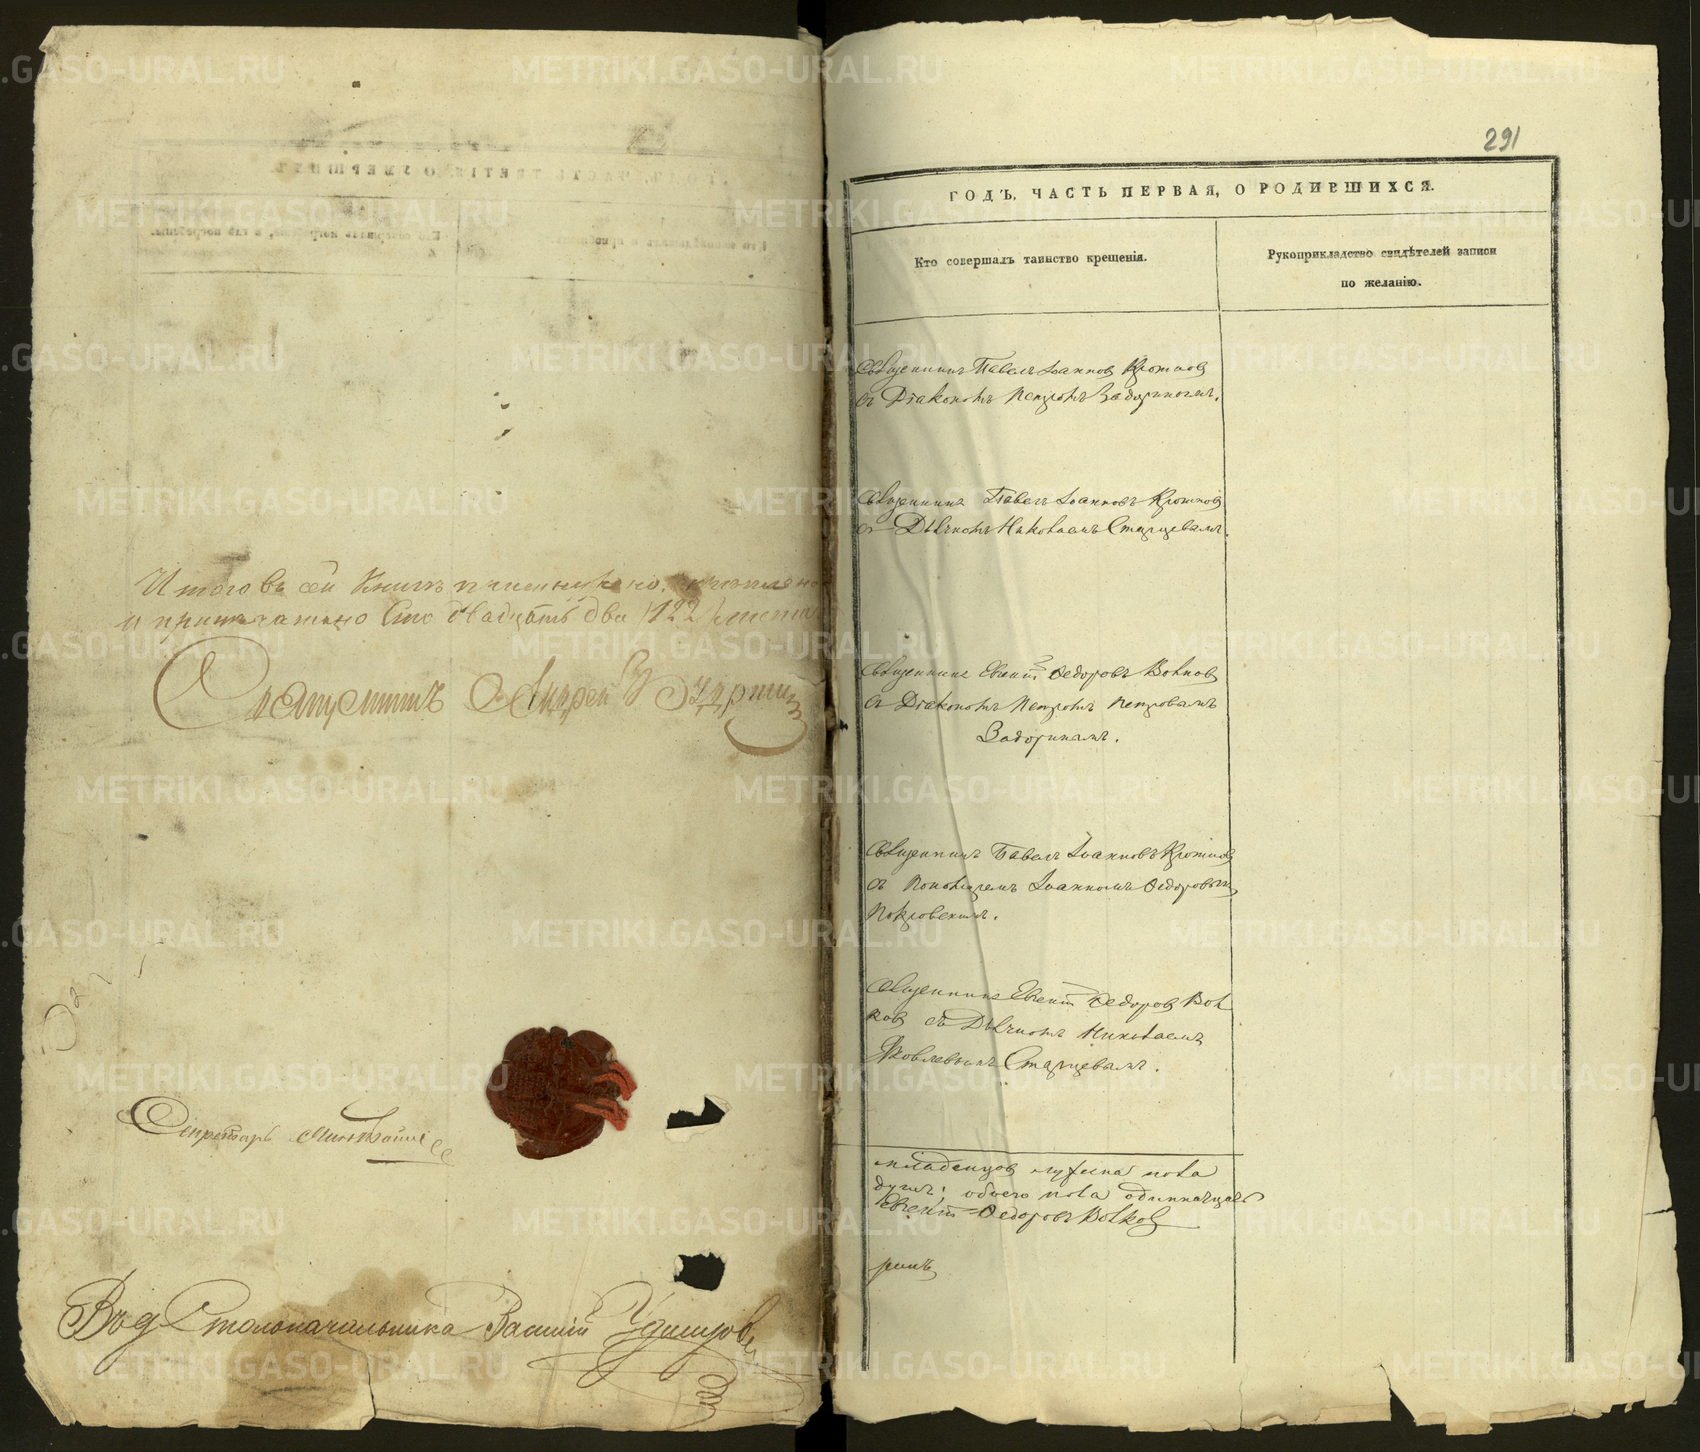 Итого въ сей Книгѣ пронумеровано, скрѣплено
и припечатано Сто двадцать два /122/ листа
Секретарь
Въ д. Столоначальника Василій
291
ГОДЪ, ЧАСТЬ ПЕРВАЯ, О РОДИВШИХСЯ.
Кто совершалъ таинство крещенія.
Рукоприкладство свидѣтелей записи
по желанію.
Священникъ Павелъ Іоанновъ Кротков
съ Діакономъ Петромъ Задоринымъ.
Священникъ Павелъ Іоанновъ Кротков
съ Дьячкомъ Николаемъ Старцевымъ.
Священникъ Евгеній Федоровъ Волков
съ Діакономъ Петромъ Петровымъ
Задоринымъ.
Священникъ Павелъ Іоанновъ Кротков
съ Пономаремъ Іоанномъ Федоровымъ
Покровскимъ.
Священникъ Евгеній Федоров Вол
ков съ Дьячкомъ Николаемъ
Яковлевымъ Старцевымъ.
младенцов мужска пола
душъ; обоего пола одиннадцать
Евгеній Федоровъ Волков
ринъ
METRIKI.GASO-URAL.RU